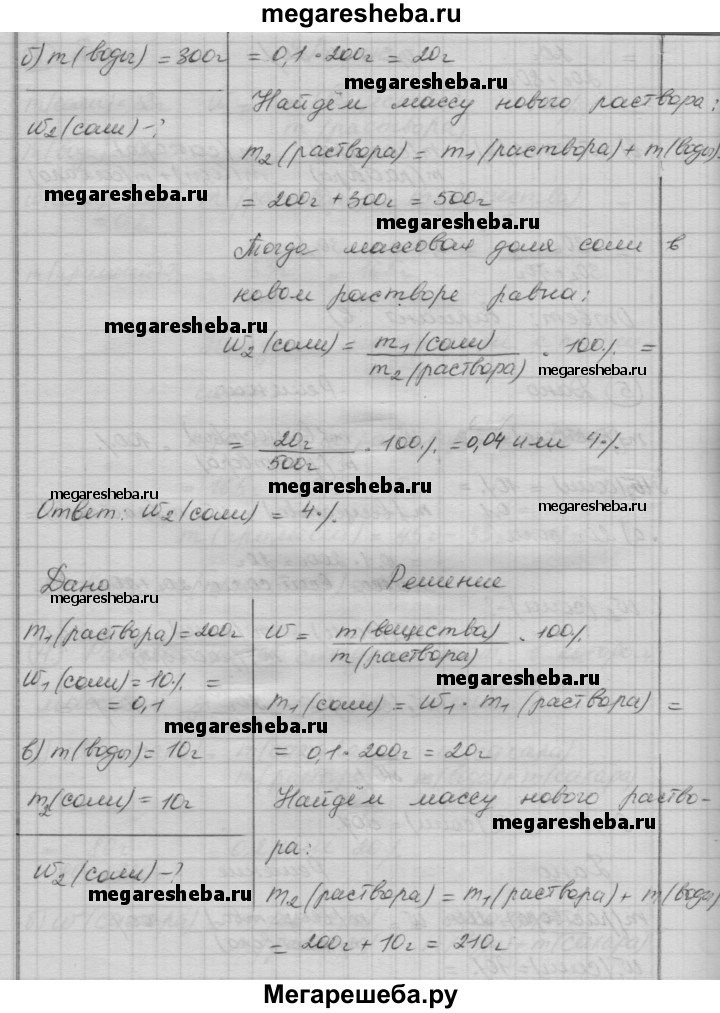 megaresheba.ru
б) m(воды) = 300г
= 0,1 · 200г = 20г
megaresheba.ru
Найдём массу нового раствора:
w₂(соли) - ?
m₂(раствора) = m₁(раствора) + m(воды)
megaresheba.ru
= 200г + 300г = 500г
megaresheba.ru
Тогда массовая доля соли в
новом растворе равна:
megaresheba.ru
w₂(соли) = m₁(соли) / m₂(раствора) · 100% =
megaresheba.ru
= 20г / 500г · 100% = 0,04 или 4%
megaresheba.ru
megaresheba.ru
megaresheba.ru
Ответ: w₂(соли) = 4%
Дано
Решение
megaresheba.ru
m₁(раствора) = 200г
w = m(вещества) / m(раствора) · 100%
w₁(соли) = 10% =
= 0,1
m₁(соли) = w₁ · m₁(раствора) =
megaresheba.ru
в) m(воды) = 10г
= 0,1 · 200г = 20г
m₂(соли) = 10г
Найдём массу нового раство-
megaresheba.ru
ра:
w₂(соли) - ?
megaresheba.ru
m₂(раствора) = m₁(раствора) + m(воды)
= 200г + 10г = 210г
Мегарешеба.ру